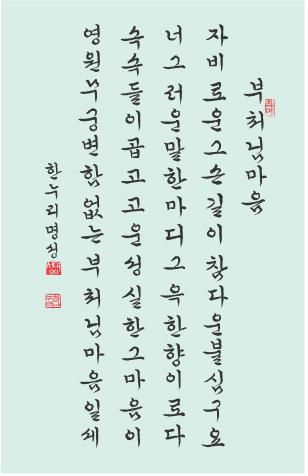 부처님마음
자비로운그손길이참다운불심구요
너그러운말한마디그윽한향이로다
속속들이곱고고운성실한그마음이
영원무궁변함없는부처님마음일세
한누리명성